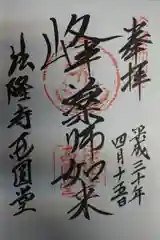 奉拝
平成三十年
四月十五日
峰薬師如来
法隆寺西円堂